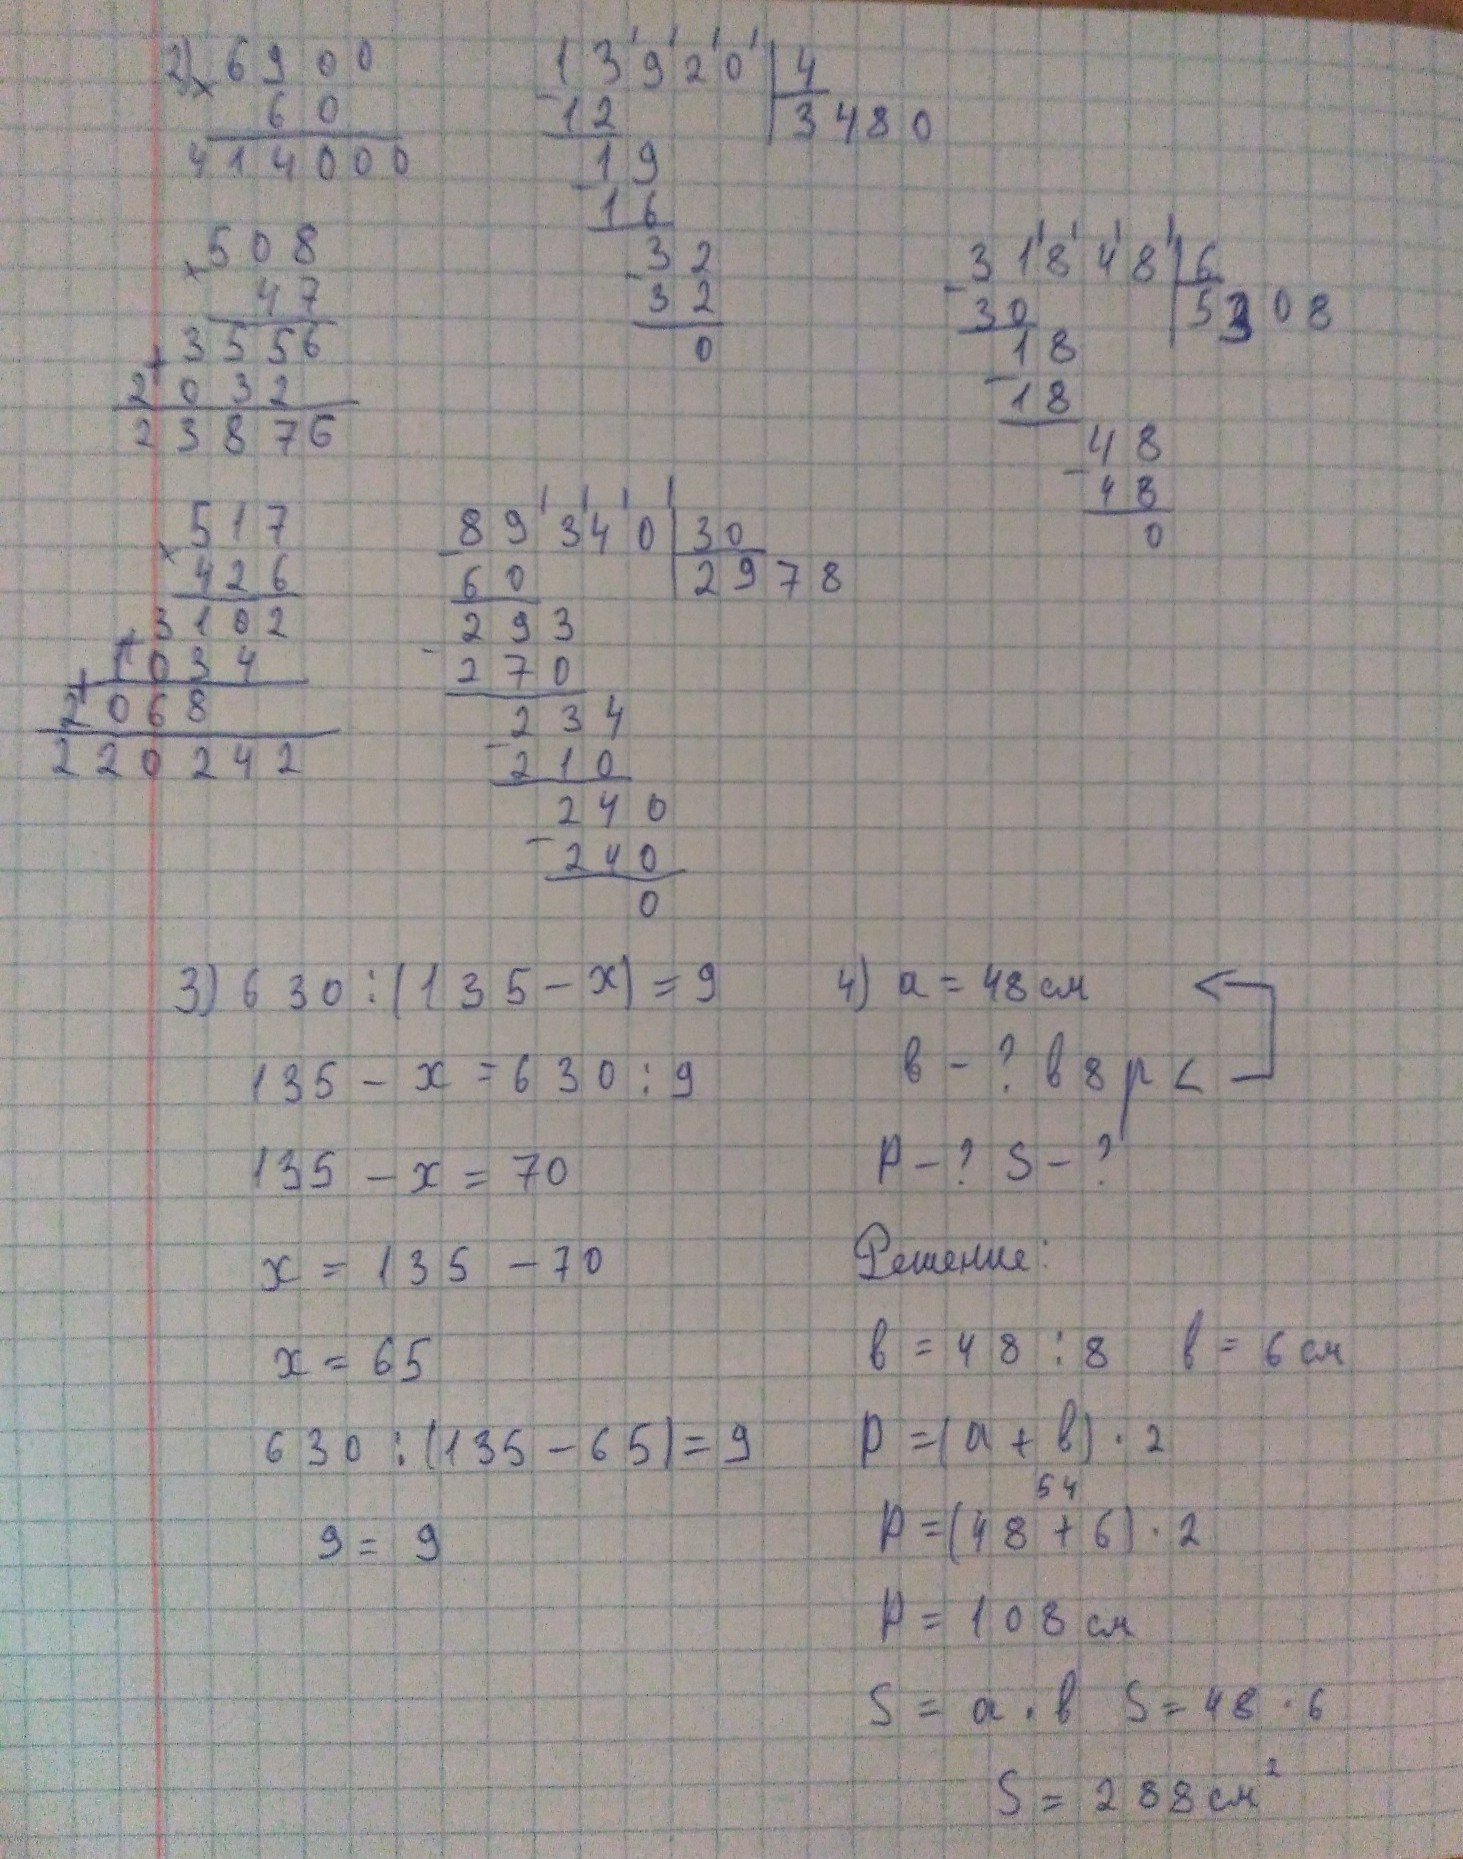 2) × 6900
60
414000
13920 | 4
- 12 | 3480
19
- 16
32
- 32
0
× 508
47
3556
+ 2032
23876
31848 | 6
- 30 | 5308
18
- 18
48
- 48
0
× 517
426
3102
+ 1034
+ 2068
220242
89340 | 30
- 60 | 2978
293
- 270
234
- 210
240
- 240
0
3) 630 : (135 - x) = 9
135 - x = 630 : 9
135 - x = 70
x = 135 - 70
x = 65
630 : (135 - 65) = 9
9 = 9
4) a = 48 см <
в - ? в 8 р <
P - ? S - ?
Решение:
в = 48 : 8 в = 6 см
P = (a + в) · 2
54
P = (48 + 6) · 2
P = 108 см
S = a · в S = 48 · 6
S = 288 см²